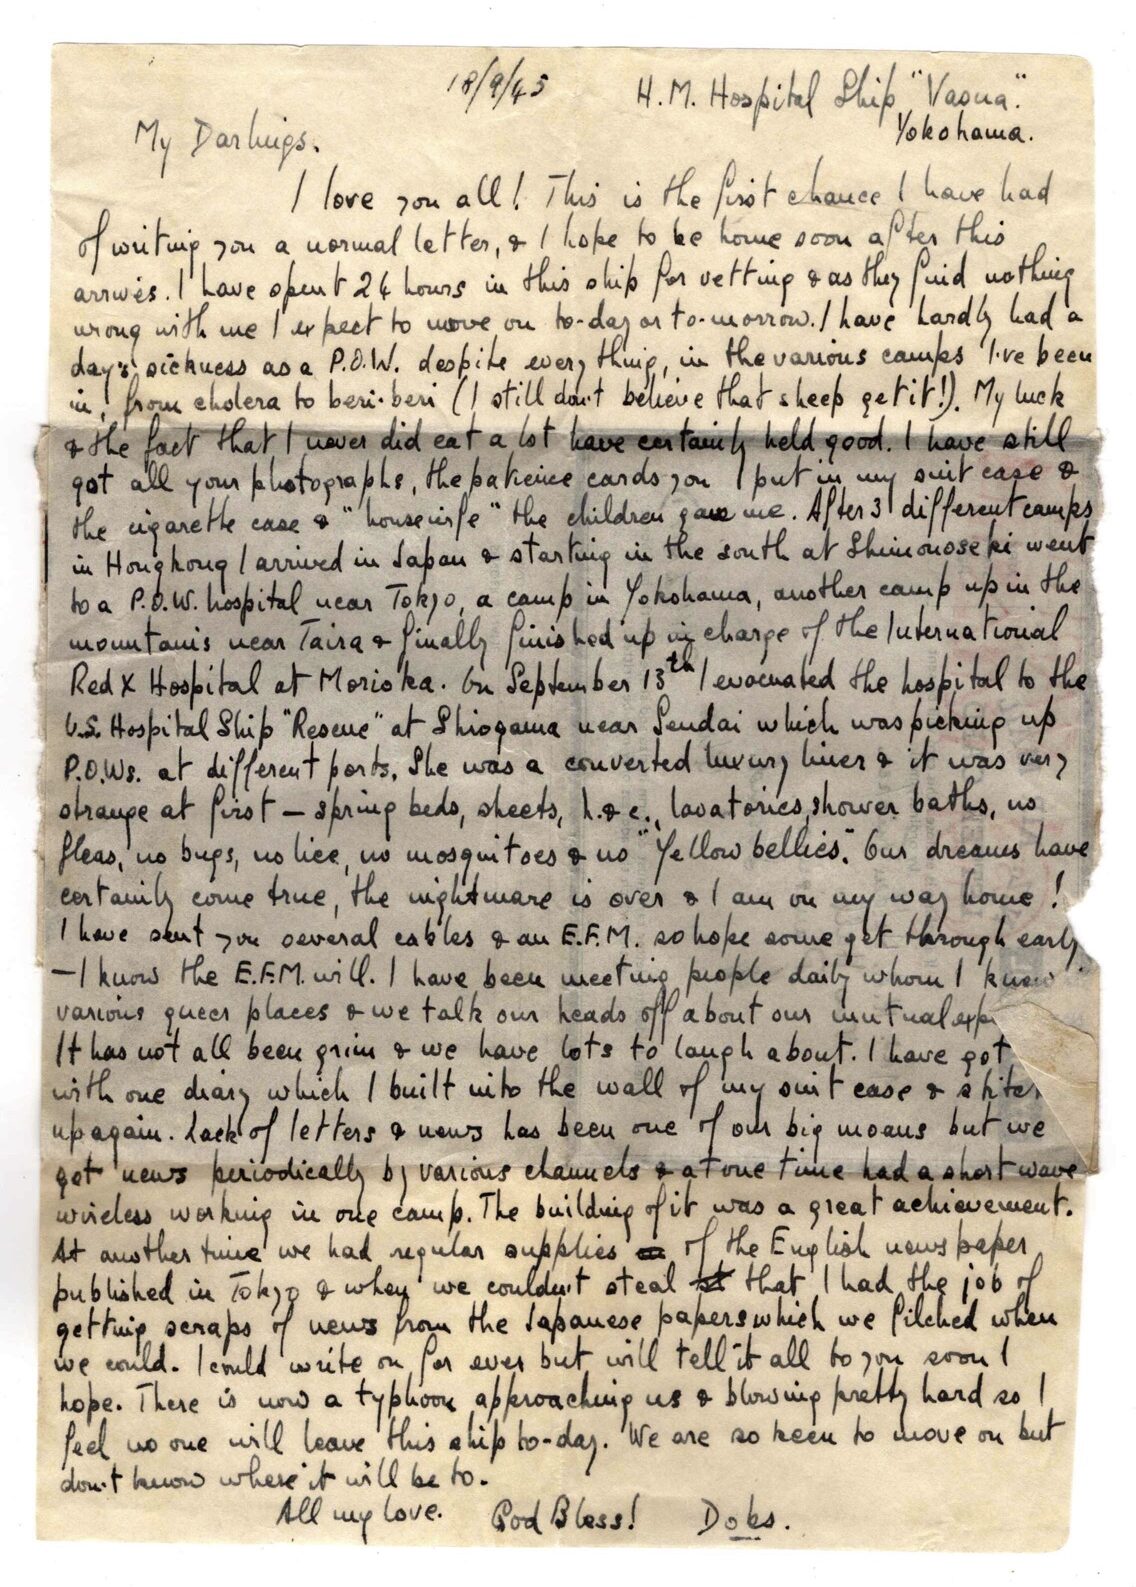 18/9/45
H.M. Hospital Ship "Vasna".
Yokohama.
My Darlings.
I love you all! This is the first chance I have had
of writing you a normal letter, & I hope to be home soon after this
arrives. I have spent 24 hours in this ship for vetting & as they find nothing
wrong with me I expect to move on to-day or to-morrow. I have hardly had a
day's sickness as a P.O.W. despite everything, in the various camps I've been
in, from cholera to beri-beri (I still don't believe that sheep get it!). My luck
& the fact that I never did eat a lot have certainly held good. I have still
got all your photographs, the patience cards you I put in my suit case &
the cigarette case & "housewife" the children gave me. After 3 different camps
in Hongkong I arrived in Japan & starting in the south at Shimonoseki went
to a P.O.W. hospital near Tokyo, a camp in Yokohama, another camp up in the
mountains near Taira & finally finished up in charge of the International
Red X Hospital at Morioka. On September 13th I evacuated the hospital to the
U.S. Hospital Ship "Rescue" at Shiogama near Sendai which was picking up
P.O.Ws. at different ports. She was a converted luxury liner & it was very
strange at first — spring beds, sheets, h. & c., lavatories, shower baths, no
fleas, no bugs, no lice, no mosquitoes & no "Yellow bellies". Our dreams have
certainly come true, the nightmare is over & I am on my way home!
I have sent you several cables & an E.F.M. so hope some get through early
— I know the E.F.M. will. I have been meeting people daily whom I knew
various queer places & we talk our heads off about our mutual exp
It has not all been grim & we have lots to laugh about. I have got
with one diary which I built into the wall of my suit case &
up again. Lack of letters & news has been one of our big moans but we
get news periodically by various channels & at one time had a short wave
wireless working in one camp. The building of it was a great achievement.
At another time we had regular supplies of the English newspaper
published in Tokyo & when we couldn't steal that I had the job of
getting scraps of news from the Japanese papers which we filched when
we could. I could write on for ever but will tell it all to you soon I
hope. There is now a typhoon approaching us & blowing pretty hard so I
feel no one will leave this ship to-day. We are so keen to move on but
don't know where it will be to.
All my love. God Bless! Dobs.